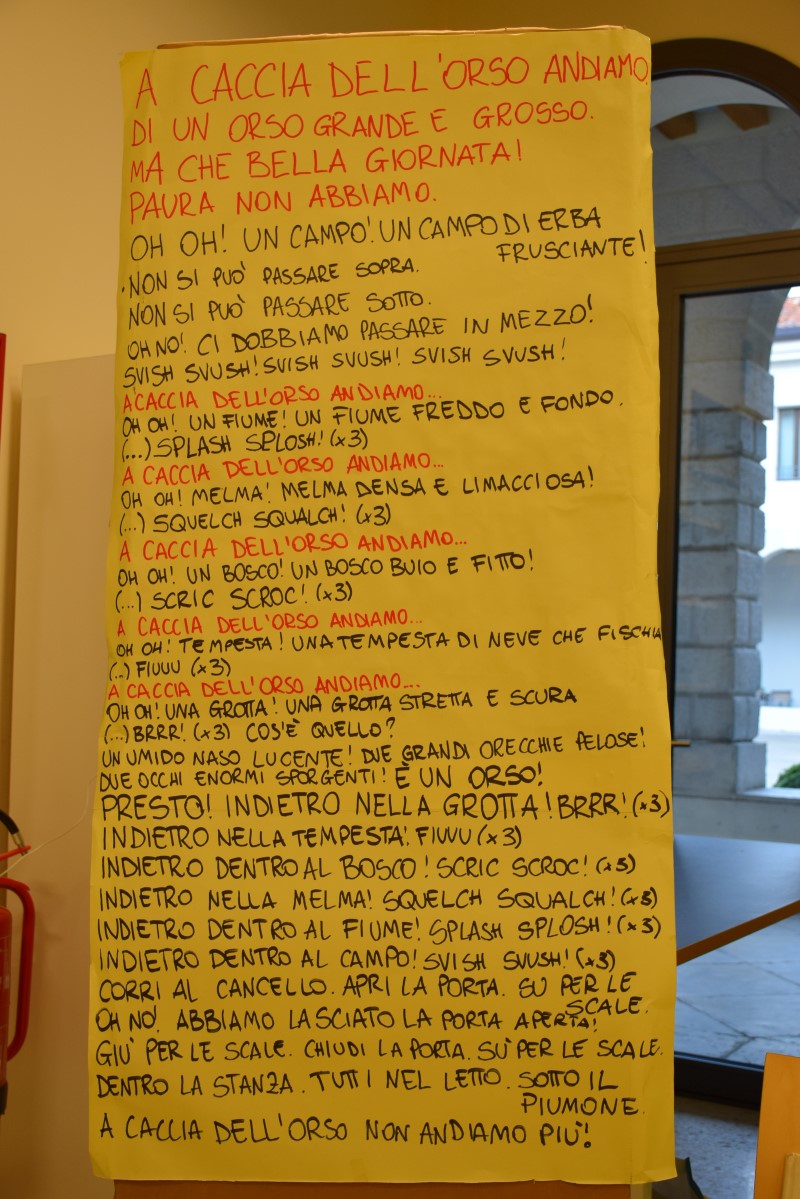 A CACCIA DELL'ORSO ANDIAMO
DI UN ORSO GRANDE E GROSSO.
MA CHE BELLA GIORNATA!
PAURA NON ABBIAMO.
OH OH! UN CAMPO! UN CAMPO DI ERBA
FRUSCIANTE!
NON SI PUÒ PASSARE SOPRA.
NON SI PUÒ PASSARE SOTTO.
OH NO! CI DOBBIAMO PASSARE IN MEZZO!
SVISH SVUSH! SVISH SVUSH! SVISH SVUSH!
A CACCIA DELL'ORSO ANDIAMO...
OH OH! UN FIUME! UN FIUME FREDDO E FONDO.
(...) SPLASH SPLOSH! (x3)
A CACCIA DELL'ORSO ANDIAMO...
OH OH! MELMA! MELMA DENSA E LIMACCIOSA!
(...) SQUELCH SQUALCH! (x3)
A CACCIA DELL'ORSO ANDIAMO...
OH OH! UN BOSCO! UN BOSCO BUIO E FITTO!
(...) SCRIC SCROC! (x3)
A CACCIA DELL'ORSO ANDIAMO...
OH OH! TEMPESTA! UNA TEMPESTA DI NEVE CHE FISCHIA
(...) FIUUU (x3)
A CACCIA DELL'ORSO ANDIAMO...
OH OH! UNA GROTTA! UNA GROTTA STRETTA E SCURA
(...) BRRR! (x3) COS'È QUELLO?
UN UMIDO NASO LUCENTE! DUE GRANDI ORECCHIE PELOSE!
DUE OCCHI ENORMI SPORGENTI! È UN ORSO!
PRESTO! INDIETRO NELLA GROTTA! BRRR! (x3)
INDIETRO NELLA TEMPESTA! FIUUU (x3)
INDIETRO DENTRO AL BOSCO! SCRIC SCROC! (x3)
INDIETRO NELLA MELMA! SQUELCH SQUALCH! (x3)
INDIETRO DENTRO AL FIUME! SPLASH SPLOSH! (x3)
INDIETRO DENTRO AL CAMPO! SVISH SVUSH! (x3)
CORRI AL CANCELLO. APRI LA PORTA. SU PER LE
SCALE.
OH NO! ABBIAMO LASCIATO LA PORTA APERTA!
GIÙ PER LE SCALE. CHIUDI LA PORTA. SÙ PER LE SCALE.
DENTRO LA STANZA. TUTTI NEL LETTO. SOTTO IL
PIUMONE.
A CACCIA DELL'ORSO NON ANDIAMO PIÙ!